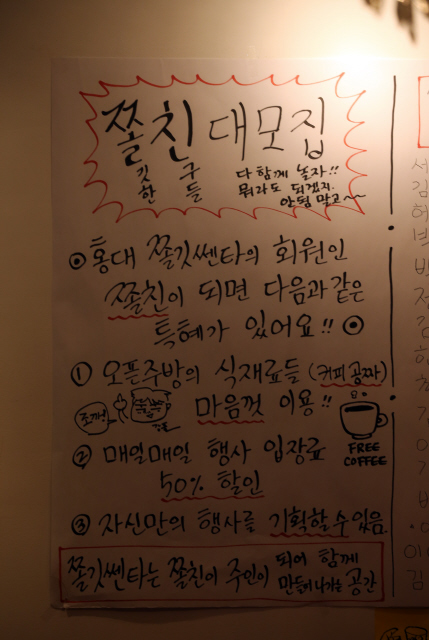 쫄친 대모집
깃 구
한 들
다 함께 놀자!!
뭐라도 되겠지.
안되 말고~~
◉ 홍대 쫄깃쎈타의 회원인
쫄친이 되면 다음과 같은
특혜가 있어요!! ◉
① 오픈주방의 식재료들 (커피 공짜)
마음껏 이용!!
FREE
COFFEE
② 매일매일 행사 입장료
50% 할인
③ 자신만의 행사를 기획할 수 있음.
쫄깃쎈타는 쫄친이 주인이 되어 함께
만들어 나가는 공간